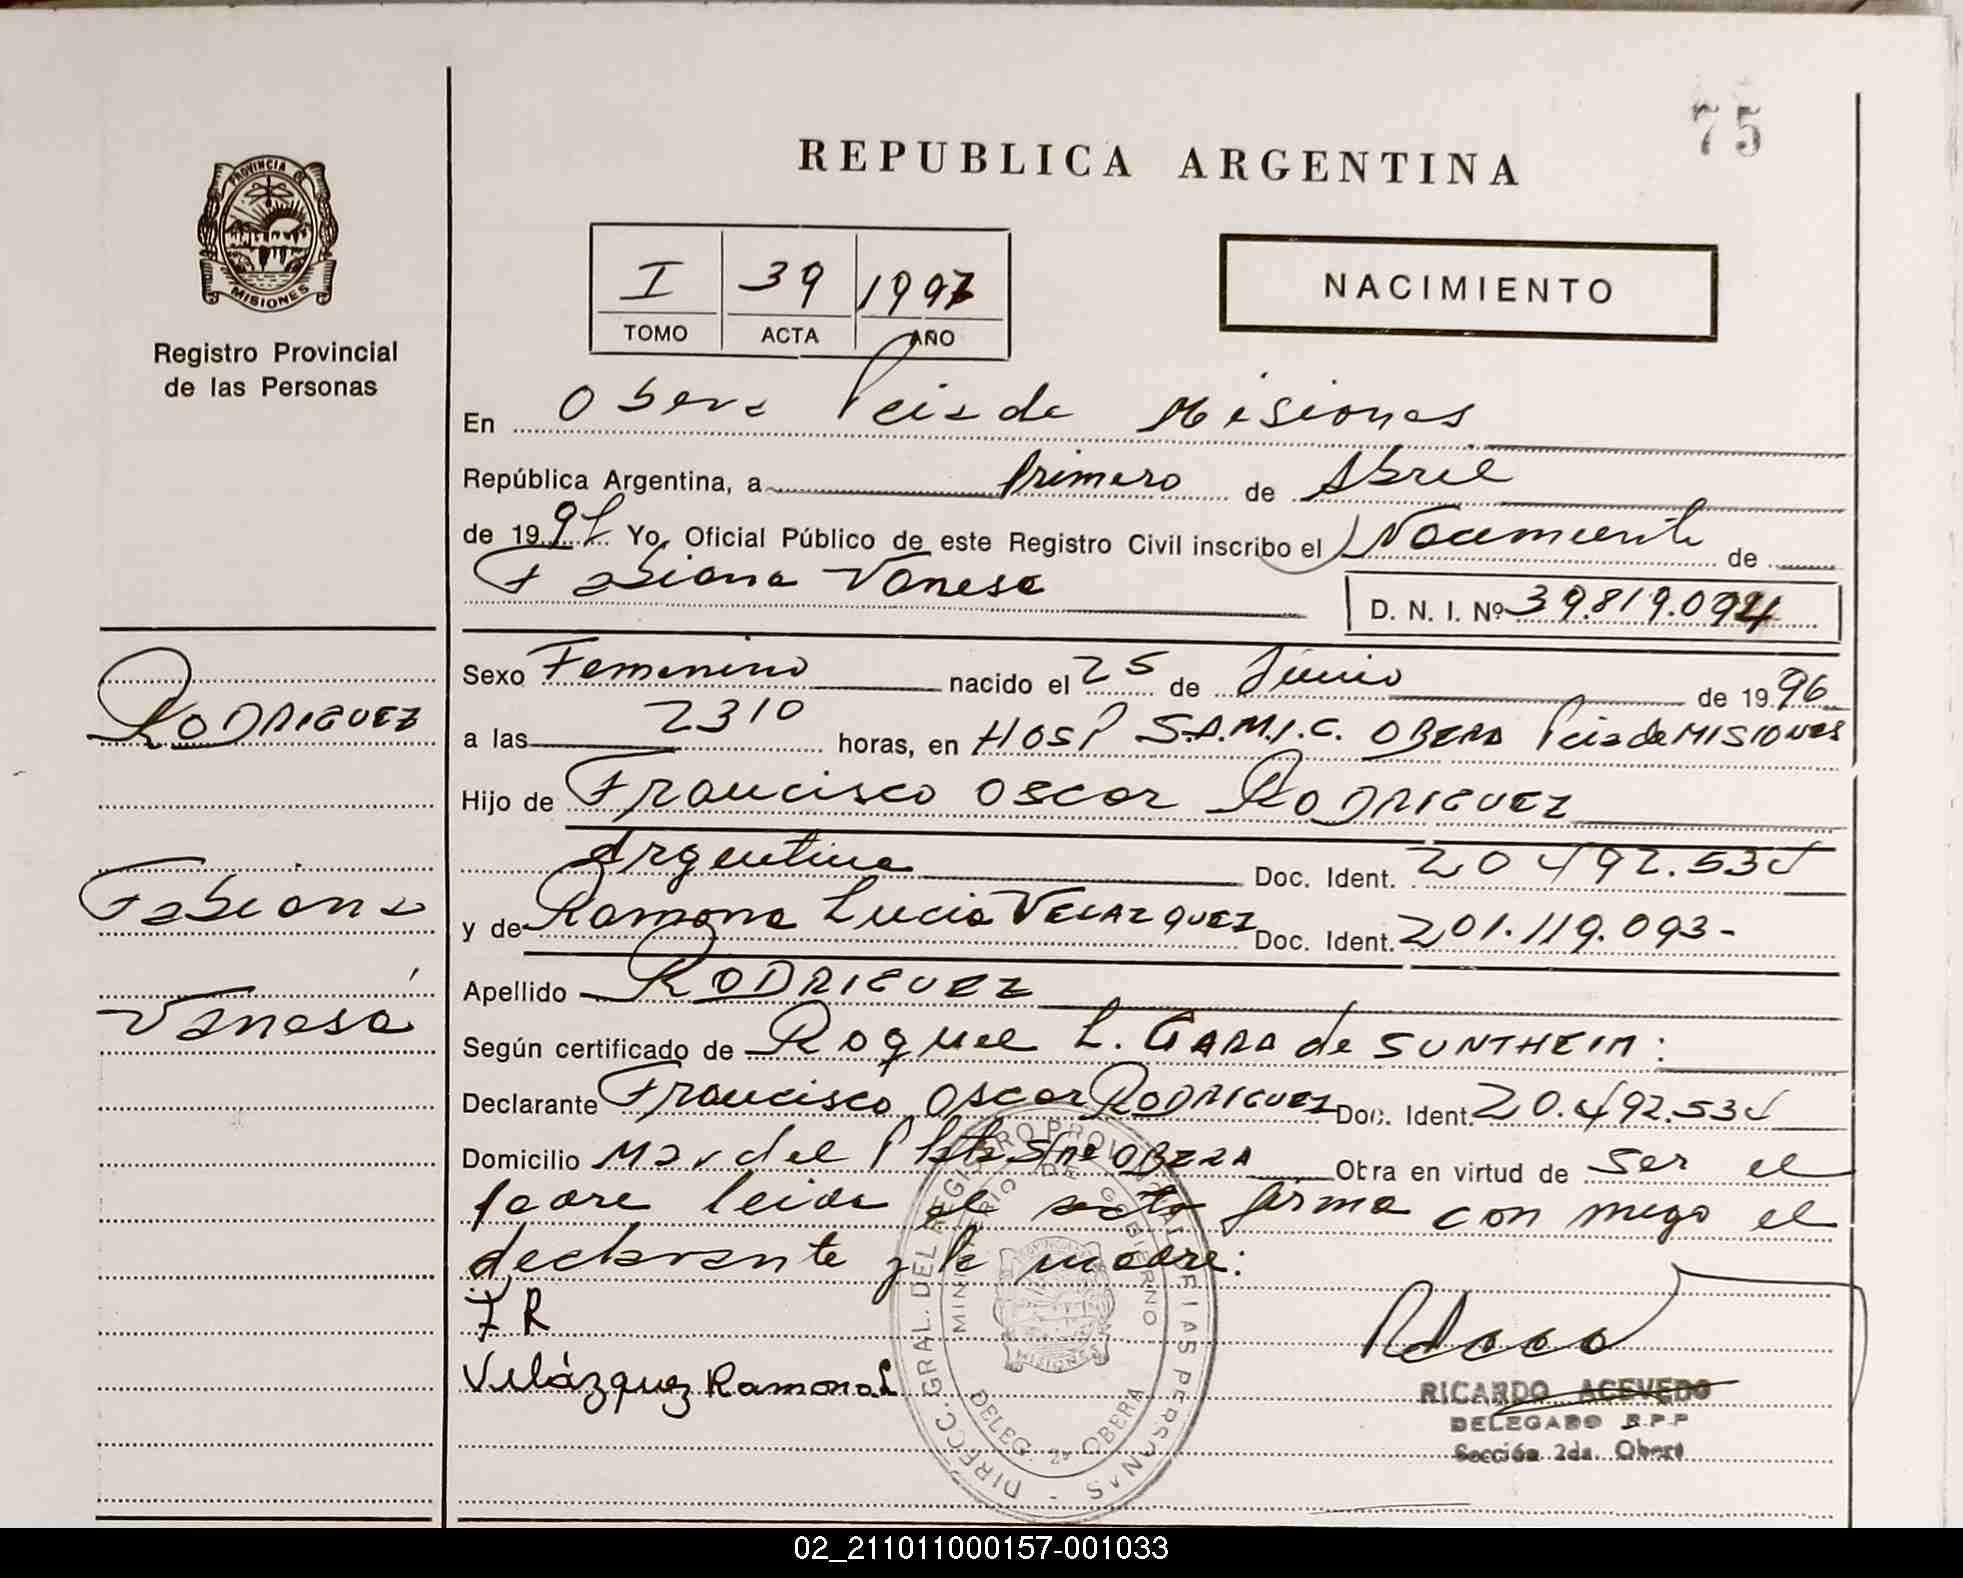 75
REPUBLICA ARGENTINA
PROVINCIA DE
MISIONES
Registro Provincial
de las Personas
I 39 1997
TOMO ACTA AÑO
NACIMIENTO
En Obera Pcia de Misiones
República Argentina, a Primero de Abril
de 1997 Yo, Oficial Público de este Registro Civil inscribo el Nacimiento de
Fabiana Vanesa
D. N. I. Nº 39.819.094
RODRIGUEZ
Fabiana
Vanesa
Sexo Femenino nacido el 25 de Junio de 1996
a las 2310 horas, en HOSP S.A.M.I.C. OBERA Pcia de MISIONES
Hijo de Francisco Oscar RODRIGUEZ
Argentina Doc. Ident. 20.492.534
y de Ramona Lucia VELAZQUEZ Doc. Ident. 201.119.093-
Apellido RODRIGUEZ
Según certificado de Raquel L. GARA de SUNTHEIM:
Declarante Francisco Oscar RODRIGUEZ Doc. Ident. 20.492.534
Domicilio Mar del Plata S/ne OBERA Obra en virtud de ser el
padre leida el acta firma con migo el
declarante y la madre:
F R
Velázquez Ramona L
DIRECC. GRAL. DEL REGISTRO PROVINCIAL DE LAS PERSONAS
MINISTERIO DE GOBIERNO
PROVINCIA DE
MISIONES
DELEG. 2ª OBERA
RICARDO ACEVEDO
DELEGADO R.P.P
Sección 2da. Oberá
02_211011000157-001033